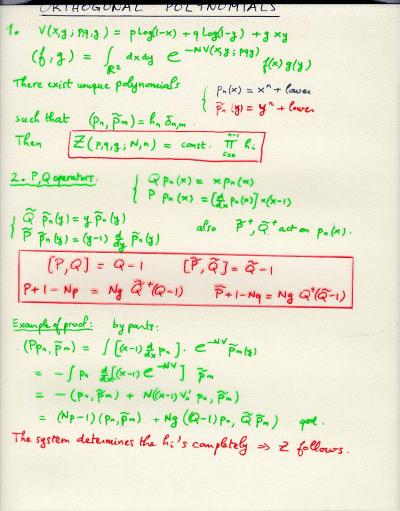 ORTHOGONAL POLYNOMIALS
1. V(x,y; p,q,g) = p Log(1-x) + q Log(1-y) + g xy
(f, g) = ∫_{ℝ²} dx dy e^{-NV(x,y; p,q,g)} f(x) g(y)
There exist unique polynomials { p_n(x) = x^n + lower
p̃_n(y) = y^n + lower
such that (p_n, p̃_m) = h_n δ_{n,m}
Then Z(p,q,g; N,n) = const. ∏_{i=0}^{n-1} h_i
2. P,Q operators. { Q p_n(x) = x p_n(x)
P p_n(x) = [d/dx p_n(x)] × (x-1)
{ Q̃ p̃_n(y) = y p̃_n(y)
P̃ p̃_n(y) = (y-1) d/dy p̃_n(y) also P̃⁺, Q̃⁺ act on p_n(x).
[P,Q] = Q-1 [P̃,Q̃] = Q̃-1
P+1-Np = Ng Q̃⁺(Q-1) P̃+1-Nq = Ng Q⁺(Q̃-1)
Example of proof: by parts:
(P p_n, p̃_m) = ∫ [(x-1) d/dx p_n] · e^{-NV} p̃_m(y)
= -∫ p_n d/dx [(x-1) e^{-NV}] p̃_m
= -(p_n, p̃_m) + N((x-1) V'_x p_n, p̃_m)
= (Np-1)(p_n, p̃_m) + Ng (Q-1) p_n, Q̃ p̃_m) qed.
The system determines the h_i's completely ⇒ Z follows.